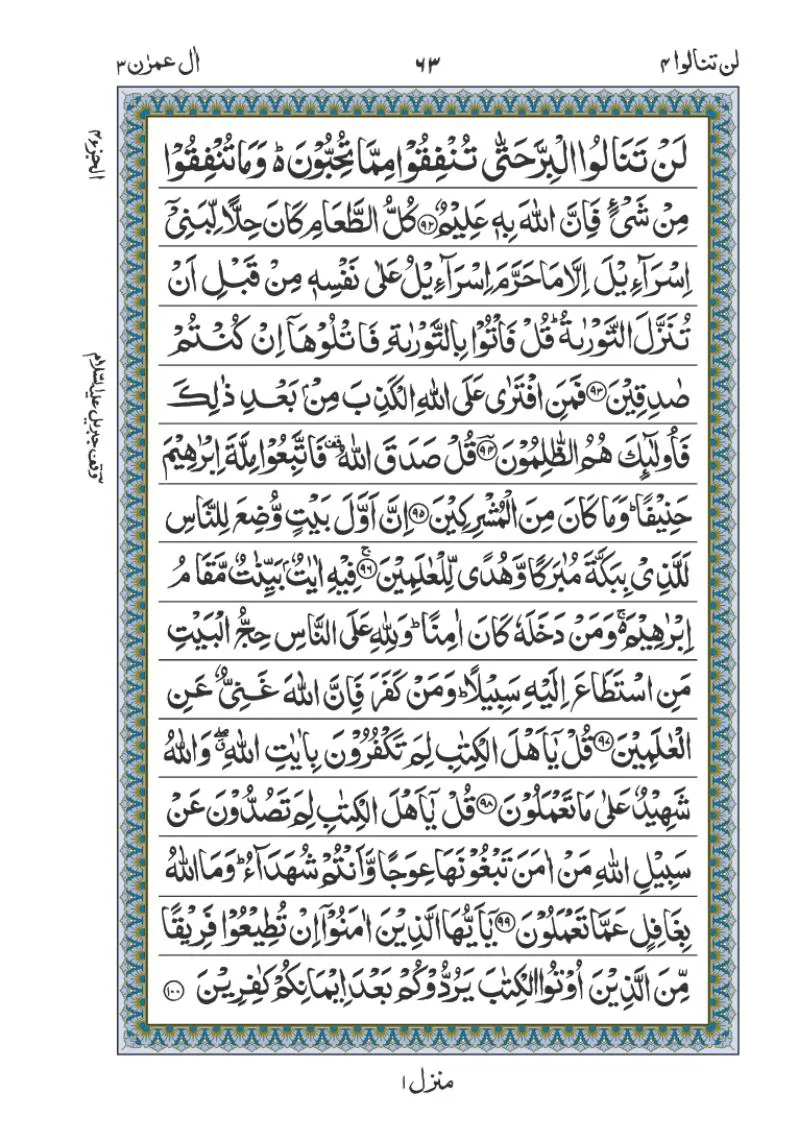 لن تنالوا ٤
٦٣
اٰل عمرٰن ٣
الجزء ٤
وقف جبريل عليه السّلام
لَنْ تَنَالُوا الْبِرَّ حَتّٰى تُنْفِقُوْا مِمَّا تُحِبُّوْنَ ؕ۬ وَمَا تُنْفِقُوْا
مِنْ شَىْءٍ فَاِنَّ اللّٰهَ بِهٖ عَلِيْمٌ ﴿۹۲﴾ كُلُّ الطَّعَامِ كَانَ حِلًّا لِّبَنِىْۤ
اِسْرَآءِيْلَ اِلَّا مَا حَرَّمَ اِسْرَآءِيْلُ عَلٰى نَفْسِهٖ مِنْ قَبْلِ اَنْ
تُنَزَّلَ التَّوْرٰىةُ ؕ قُلْ فَاْتُوْا بِالتَّوْرٰىةِ فَاتْلُوْهَاۤ اِنْ كُنْتُمْ
صٰدِقِيْنَ ﴿۹۳﴾ فَمَنِ افْتَرٰى عَلَى اللّٰهِ الْكَذِبَ مِنْۢ بَعْدِ ذٰلِكَ
فَاُولٰٓئِكَ هُمُ الظّٰلِمُوْنَ ﴿۹۴﴾ قُلْ صَدَقَ اللّٰهُ ۟ فَاتَّبِعُوْا مِلَّةَ اِبْرٰهِيْمَ
حَنِيْفًا ؕ وَمَا كَانَ مِنَ الْمُشْرِكِيْنَ ﴿۹۵﴾ اِنَّ اَوَّلَ بَيْتٍ وُّضِعَ لِلنَّاسِ
لَلَّذِىْ بِبَكَّةَ مُبٰرَكًا وَّهُدًى لِّلْعٰلَمِيْنَ ۚ﴿۹۶﴾ فِيْهِ اٰيٰتٌۢ بَيِّنٰتٌ مَّقَامُ
اِبْرٰهِيْمَ ۚ۬ وَمَنْ دَخَلَهٗ كَانَ اٰمِنًا ؕ وَلِلّٰهِ عَلَى النَّاسِ حِجُّ الْبَيْتِ
مَنِ اسْتَطَاعَ اِلَيْهِ سَبِيْلًا ؕ وَمَنْ كَفَرَ فَاِنَّ اللّٰهَ غَنِىٌّ عَنِ
الْعٰلَمِيْنَ ﴿۹۷﴾ قُلْ يٰۤاَهْلَ الْكِتٰبِ لِمَ تَكْفُرُوْنَ بِاٰيٰتِ اللّٰهِ ۖۗ وَاللّٰهُ
شَهِيْدٌ عَلٰى مَا تَعْمَلُوْنَ ﴿۹۸﴾ قُلْ يٰۤاَهْلَ الْكِتٰبِ لِمَ تَصُدُّوْنَ عَنْ
سَبِيْلِ اللّٰهِ مَنْ اٰمَنَ تَبْغُوْنَهَا عِوَجًا وَّاَنْتُمْ شُهَدَآءُ ؕ وَمَا اللّٰهُ
بِغَافِلٍ عَمَّا تَعْمَلُوْنَ ﴿۹۹﴾ يٰۤاَيُّهَا الَّذِيْنَ اٰمَنُوْۤا اِنْ تُطِيْعُوْا فَرِيْقًا
مِّنَ الَّذِيْنَ اُوْتُوا الْكِتٰبَ يَرُدُّوْكُمْ بَعْدَ اِيْمَانِكُمْ كٰفِرِيْنَ ﴿۱۰۰﴾
منزل ١